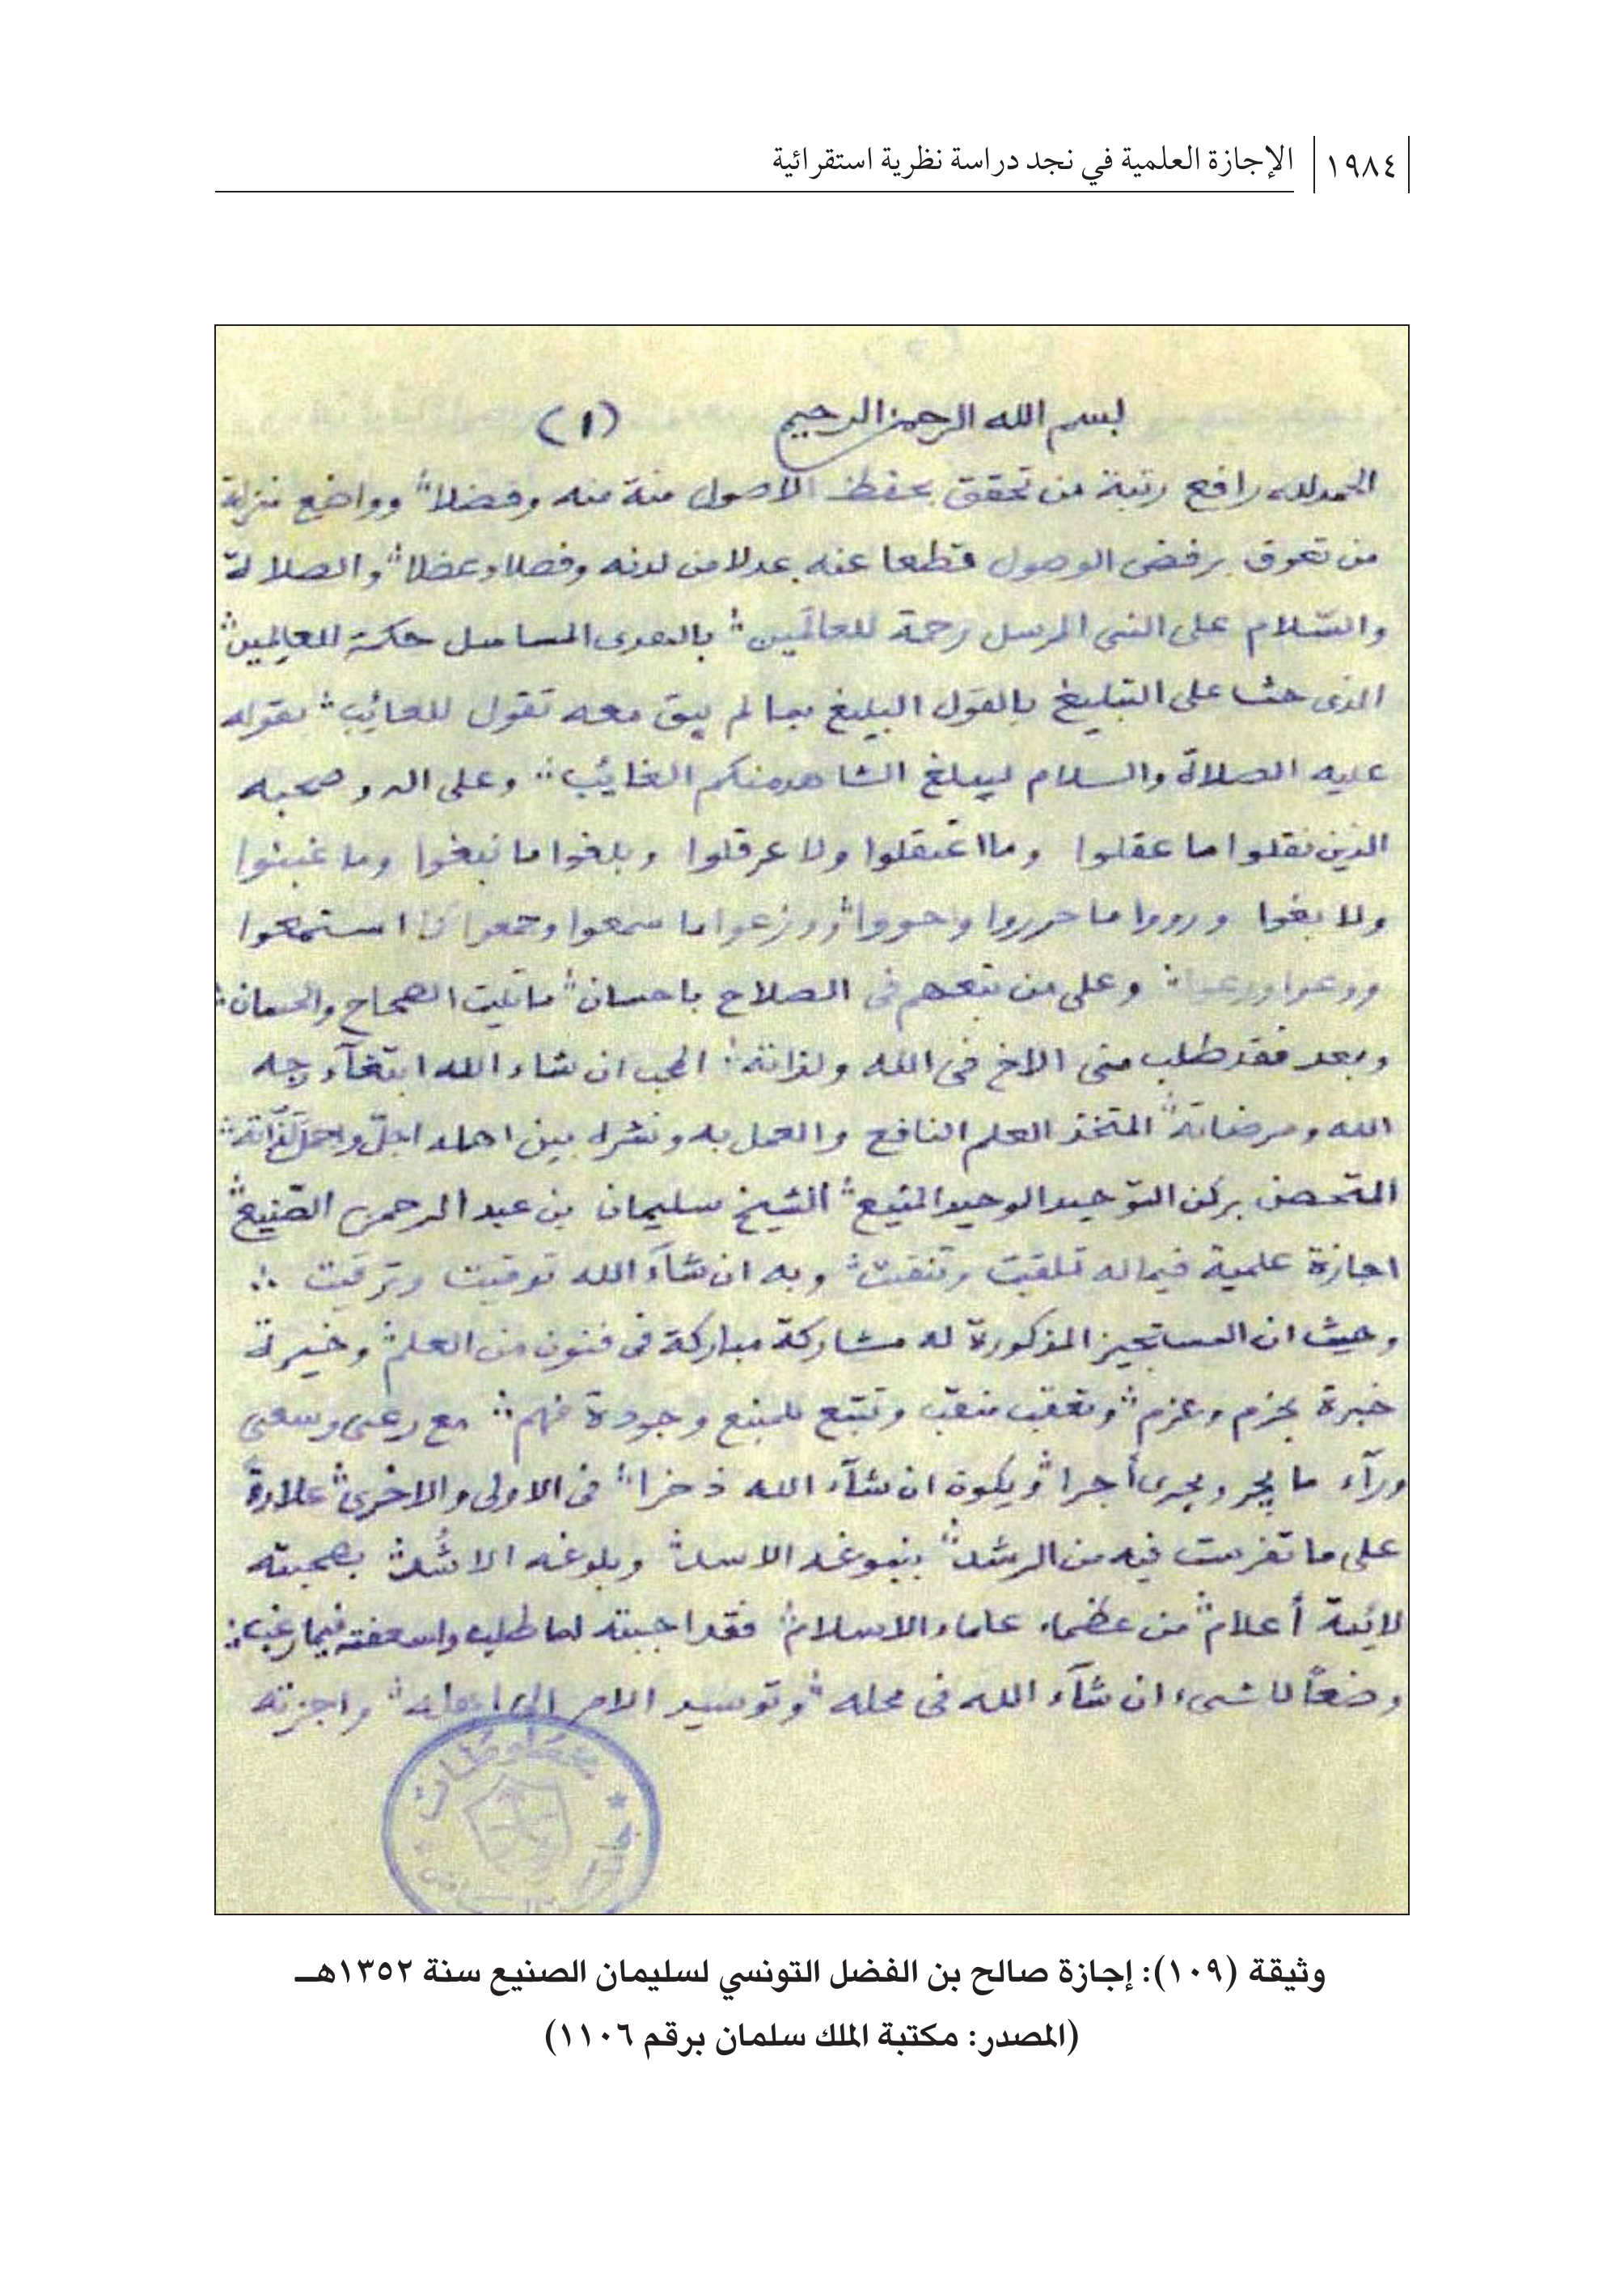 ١٩٨٤ الإجازة العلمية في نجد دراسة نظرية استقرائية
بسم الله الرحمن الرحيم (١)
الحمد لله رافع رتبة من تحقق بحفظ الاصول منة منه وفضلا ووا ضع منزلة
من تعوق برفض الوصول قطعا عنه عدلا من لدنه وفصلا وعضلا والصلا لة
والسّلام على النبى المرسل رحمة للعالَمين بالهدى حكمة للعالِمين
الذى حث على التبليغ بالقول البليغ بما لم يبق معه تقول للعائب بقوله
عليه الصلاة والسلام ليبلغ الشاهد منكم الغائب وعلى اله وصحبه
الذين نقلوا ما عقلوا وما اعتقلوا ولا عرقلوا وبلغوا ما نبغوا وما غبنوا
ولا بغوا ورووا ما حرروا وحووا ما سمعوا وجمعوا استمعوا
ووعوا وعلى من تبعهم فى الصلاح باحسان ما تليت الصحاح والحسان
وبعد فقد طلب منى الاخ فى الله ولذاته المحب ان شاء الله ابتغآء وجه
الله ومرضاته المتخذ العلم النافع والعمل به ونشره بين اهله اجلّ
المتحصن بركن التوحيد الوحيد المنيع الشيخ سليمان بن عبد الرحمن الصّنيع
اجازة علمية فيما له تلقيت وتنقيت وبه ان شآء الله توقيت وترقيت
وحيث ان المستجيز المذكورة له مشاركة مباركة فى فنون من العلم وخيرة
خبرة بحزم وعزم وتعقب منقب وتتبع وجودة فهم مع رعى وسعى
ورآء ما يجر ويجرى أجرا ويكون ان شآء الله ذخرا فى الاولى والاخرى علاوة
على ما تفرست فيه من الرشد بنبوغه الاسد وبلوغه الاشُد بصحبته
لائمة أعلام من عظماء علماء الاسلام فقد اجبته لما طلب واسعفته فيما رغب
وضعاً للشىء ان شآء الله فى محله وتوسيد الامر الى اهله واجزته
مخطوطات
وثيقة (١٠٩): إجازة صالح بن الفضل التونسي لسليمان الصنيع سنة ١٣٥٢هـ
(المصدر: مكتبة الملك سلمان برقم ١١٠٦)